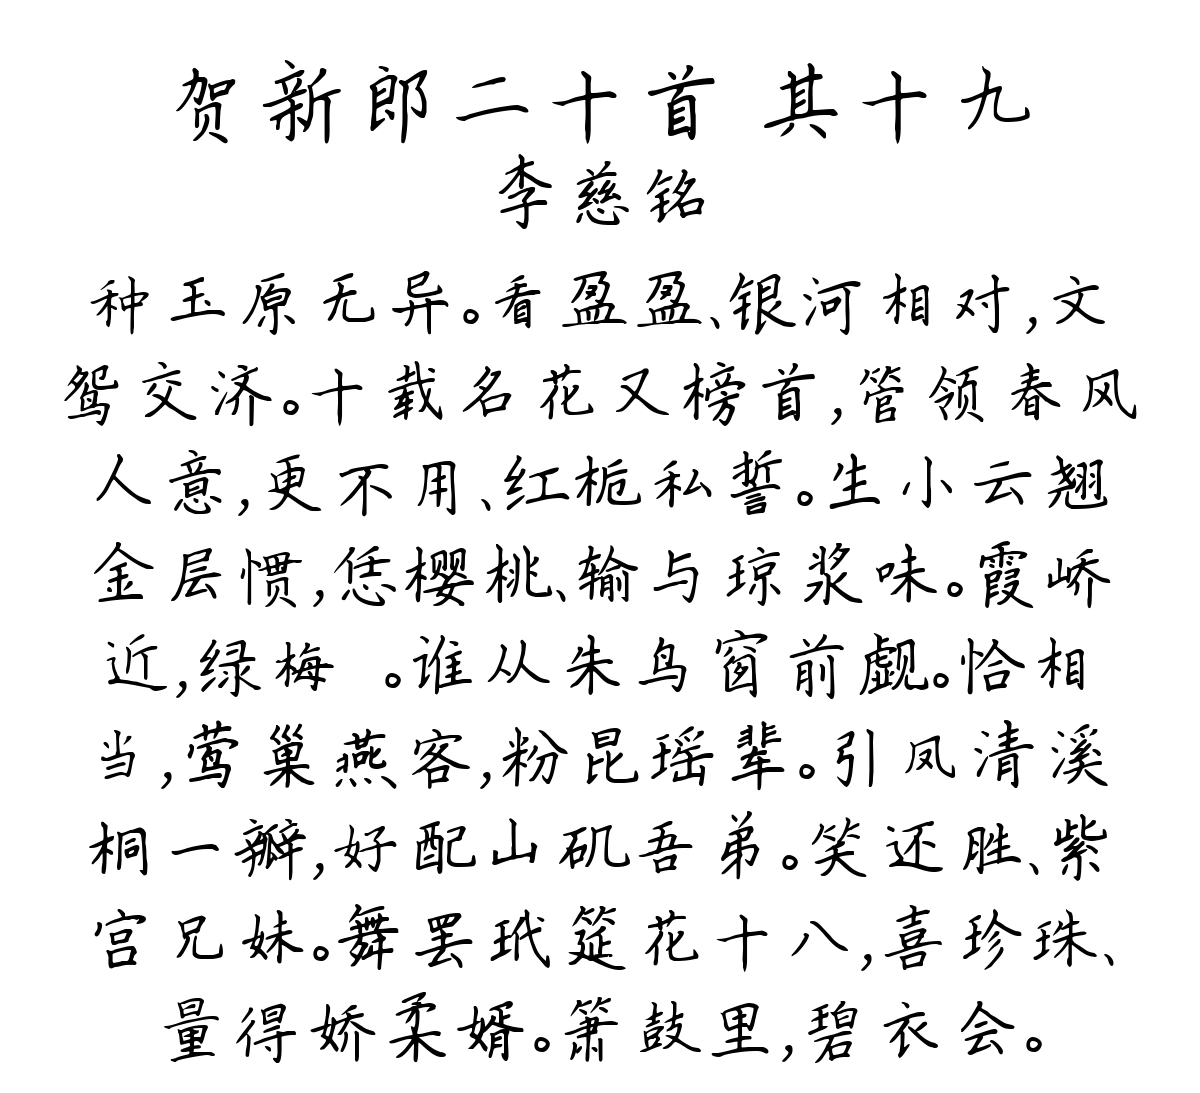 贺新郎二十首 其十九
李慈铭
种玉原无异。看盈盈、银河相对，文
鸳交济。十载名花又榜首，管领春风
人意，更不用、红栀私誓。生小云翘
金层惯，恁樱桃、输与琼浆味。霞峤
近，绿梅 。谁从朱鸟窗前觑。恰相
当，莺巢燕客，粉昆瑶辈。引凤清溪
桐一瓣，好配山矶吾弟。笑还胜、紫
宫兄妹。舞罢玳筵花十八，喜珍珠、
量得娇柔婿。箫鼓里，碧衣会。